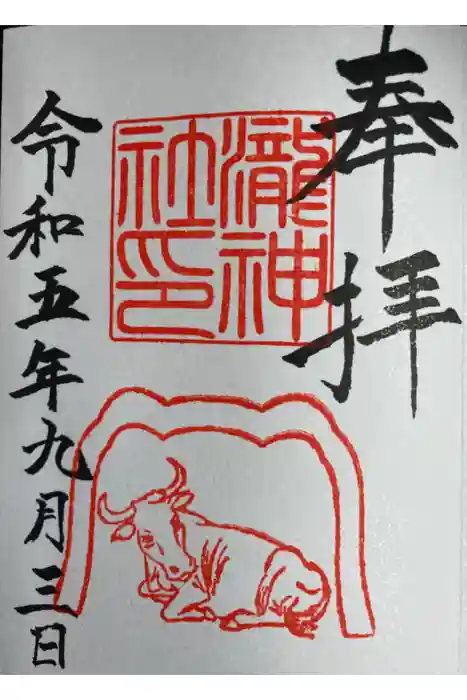 奉拝
瀧神
社印
令和五年九月三日